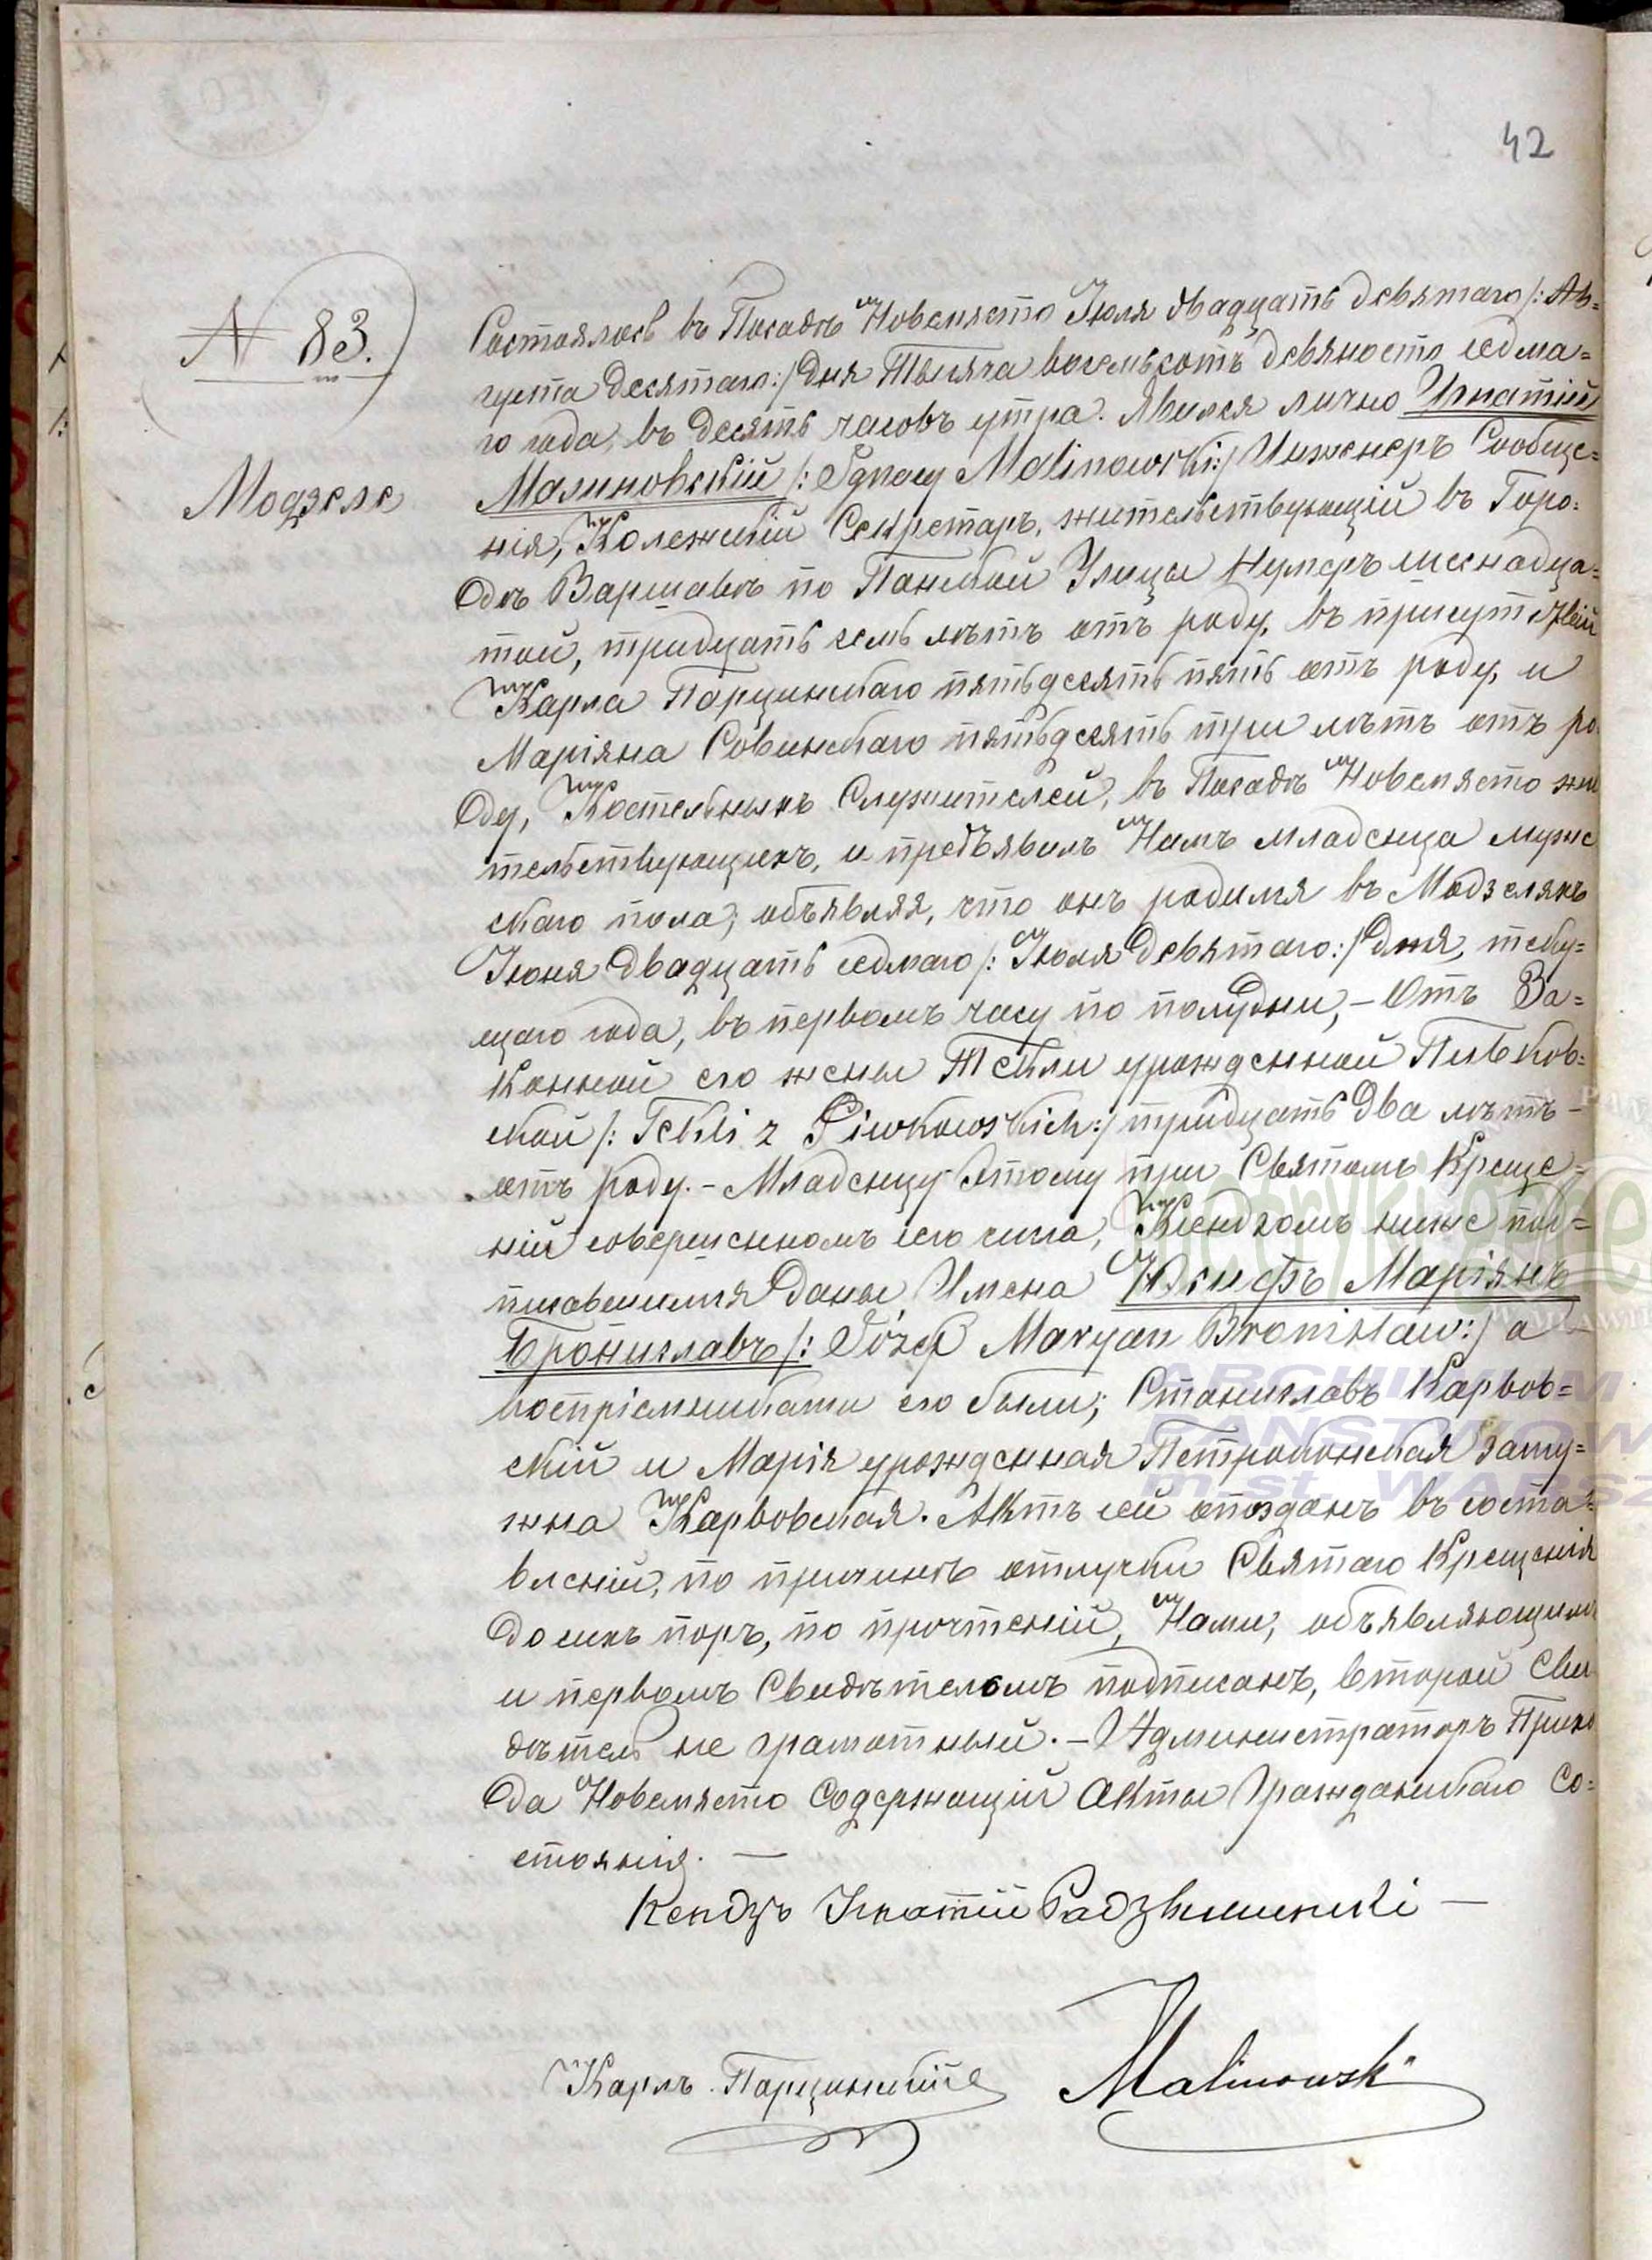 42
№ 83.
Модзеле
Состоялось въ Посадѣ Новемясто Іюля двадцать девятаго /: Ав=
густа десятаго:/ дня Тысяча восемьсотъ девяносто седма=
го года, въ десять часовъ утра. Явился лично Игнатій
Малиновскій /: Ignacy Malinowski:/ Инженеръ Сообще=
нія, Колежскій Секретарь, жительствующій въ Горо=
дѣ Варшавѣ по Панской Улицы Нумеръ шеснадца=
той, тридцать семь лѣтъ отъ роду, въ присутствіи
Карла Парцинскаго пятьдесять пять отъ роду, и
Маріяна Совинскаго пятьдесять три лѣтъ отъ ро
ду, Костельныхъ Служителей, въ Посадѣ Новемясто жи
тельствующихъ, и предъявилъ Намъ младенца мужс
скаго пола, объявляя, что онъ родился въ Модзеляхъ
Іюня двадцать седмаго /: Іюля девятаго:/ дня, теку=
щаго года, въ первомъ часу по полудни, – Отъ За=
конной его жены Текли урожденной Пивков=
ской /: Tekli z Piwkowskich:/ тридцать два лѣтъ –
отъ роду. – Младенцу этому при Святомъ Креще=
ніи совершенномъ сего числа, Ксендзомъ ниже под=
писавшимся Даны Имена Іосифъ Маріянъ
Брониславъ /: Józef Maryan Bronisław:/ а
воспріемниками его были; Станиславъ Карвов=
скій и Марія урожденная Петроконская Заму=
жна Карвовская. Актъ сей опозданъ въ соста=
вленіи, по причинѣ отлучки Святаго Крещенія
до сихъ поръ, по прочтеніи, Нами, объявляющимъ
и первомъ Свидѣтеломъ подписанъ, второй Сви
дѣтель не грамотный. – Администраторъ Прихо
да Новемясто Содержащій Акты Гражданскаго Со=
стоянія. –
Ксендзъ Игнатій –
Карлъ Парцинскій Malinowski